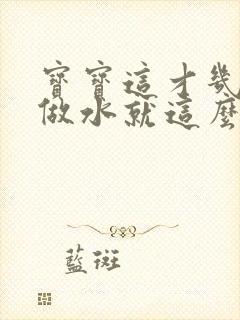 寶寶這才幾
做水就這麼
藍斑